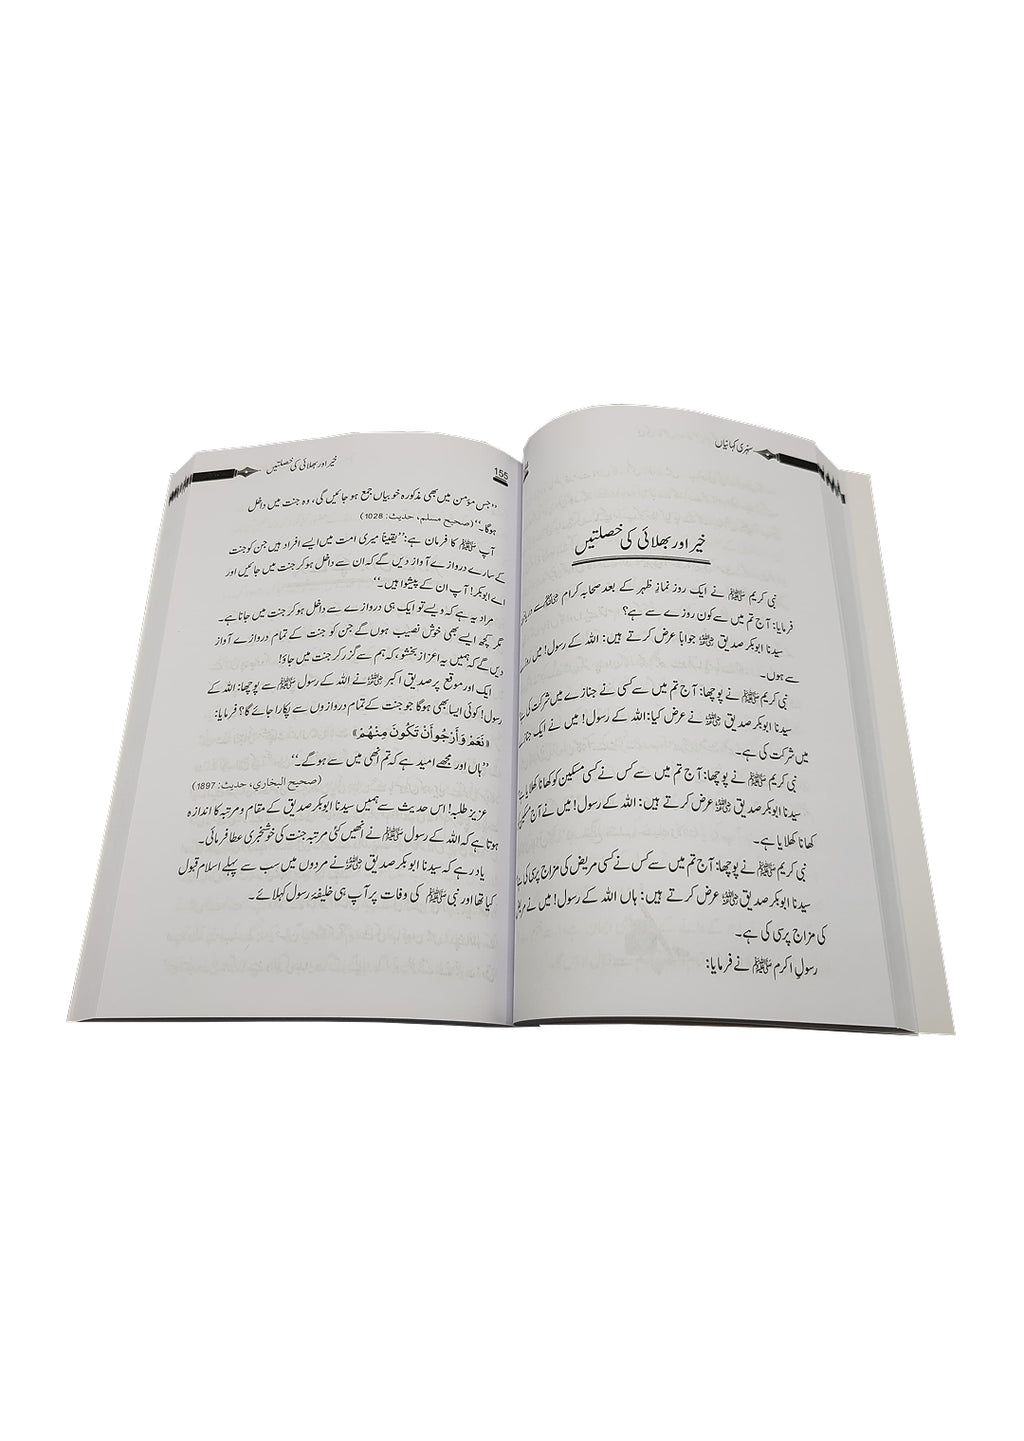 سنہری کہانیاں
خیر اور بھلائی کی خصلتیں
نبی کریم ﷺ نے ایک روز نمازِ ظہر کے بعد صحابہ کرام رضی اللہ عنہم سے
فرمایا: آج تم میں سے کون روزے سے ہے؟
سیدنا ابوبکر صدیق رضی اللہ عنہ جواباً عرض کرتے ہیں: اللہ کے رسول! میں
سے ہوں۔
نبی کریم ﷺ نے پوچھا: آج تم میں سے کسی نے جنازے میں شرکت کی
سیدنا ابوبکر صدیق رضی اللہ عنہ نے عرض کیا: اللہ کے رسول! میں نے ایک
میں شرکت کی ہے۔
نبی کریم ﷺ نے پوچھا: آج تم میں سے کس نے کسی مسکین کو کھانا کھلایا
سیدنا ابوبکر صدیق رضی اللہ عنہ عرض کرتے ہیں: اللہ کے رسول! میں نے آج
کھانا کھلایا ہے۔
نبی کریم ﷺ نے پوچھا: آج تم میں سے کس نے کسی مریض کی مزاج پرسی کی
سیدنا ابوبکر صدیق رضی اللہ عنہ عرض کرتے ہیں: ہاں اللہ کے رسول! میں نے
کی مزاج پرسی کی ہے۔
رسولِ اکرم ﷺ نے فرمایا:
خیر اور بھلائی کی خصلتیں
155
’’جس مؤمن میں بھی مذکورہ خوبیاں جمع ہو جائیں گی، وہ جنت میں داخل
ہوگا۔‘‘ (صحیح مسلم، حدیث: 1028)
آپ ﷺ کا فرمان ہے: ’’یقیناً میری امت میں ایسے افراد ہیں جن کو جنت
کے سارے دروازے آواز دیں گے کہ ان سے داخل ہو کر جنت میں جائیں اور
اے ابوبکر! آپ ان کے پیشوا ہیں۔‘‘
مراد یہ ہے کہ ویسے تو ایک ہی دروازے سے داخل ہو کر جنت میں جانا ہے۔
مگر کچھ ایسے بھی خوش نصیب ہوں گے جن کو جنت کے تمام دروازے آواز
دیں گے کہ ہمیں یہ اعزاز بخشو، کہ ہم سے گزر کر جنت میں جاؤ!
ایک اور موقع پر صدیق اکبر رضی اللہ عنہ نے اللہ کے رسول ﷺ سے پوچھا: اللہ کے
رسول! کوئی ایسا بھی ہوگا جو جنت کے تمام دروازوں سے پکارا جائے گا؟ فرمایا:
«نَعَمْ وَأَرْجُو أَنْ تَكُونَ مِنْهُمْ»
’’ہاں اور مجھے امید ہے کہ تم انھی میں سے ہو گے۔‘‘
(صحیح البخاري، حدیث: 1897)
عزیز طلبہ! اس حدیث سے ہمیں سیدنا ابوبکر صدیق کے مقام و مرتبہ کا اندازہ
ہوتا ہے کہ اللہ کے رسول ﷺ نے انھیں کئی مرتبہ جنت کی خوشخبری عطا فرمائی۔
یاد رہے کہ سیدنا ابوبکر صدیق رضی اللہ عنہ نے مردوں میں سب سے پہلے اسلام قبول
کیا تھا اور نبی ﷺ کی وفات پر آپ ہی خلیفۂ رسول کہلائے۔